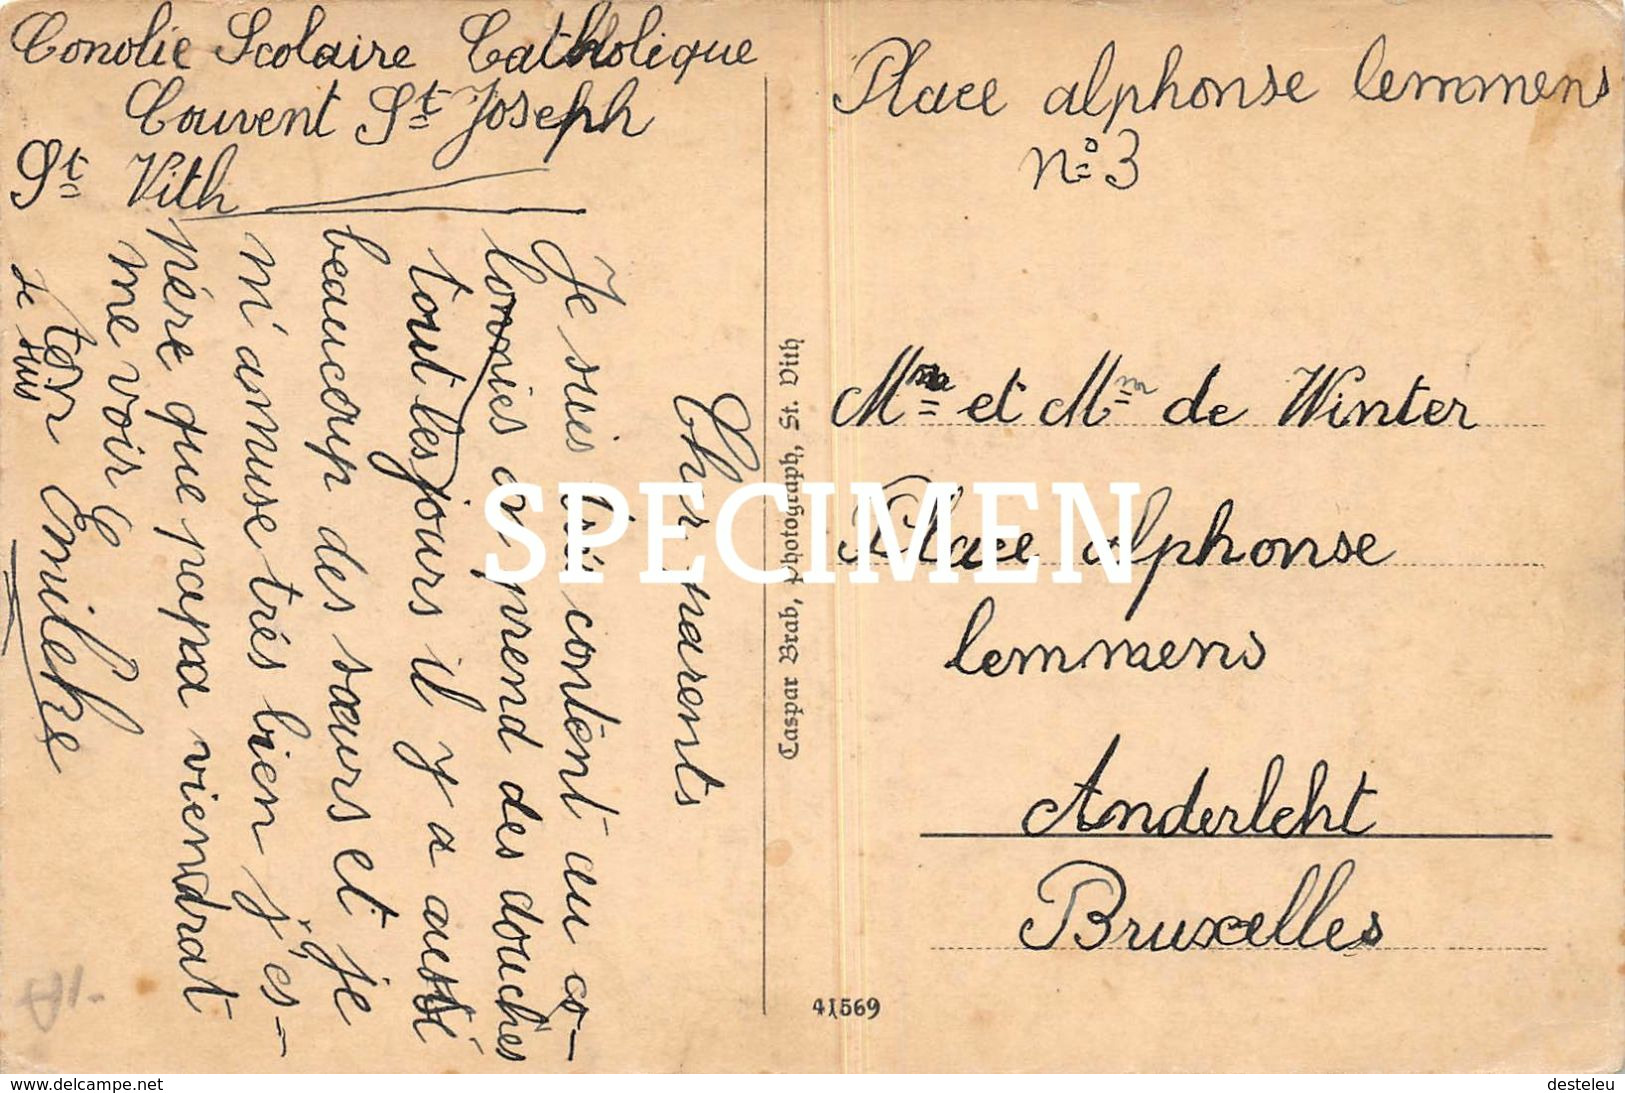 Conolie Scolaire Catholique
Couvent St Joseph
St Vith
Cher parents
Je suis trè contènt au co-
lonies on prend des douches
tout les jours il y a aussi
beaucoup des sœurs et je
m'amuse très bien j'es-
père que papa viendrat
me voir
Je suis
ton Emileke
Caspar Brab, Photograph, St. Vith
41569
Place alphonse lemmens
n° 3
Mm et Mm de Winter
Place alphonse
lemmens
Anderleht
Bruxelles
SPECIMEN
www.delcampe.net
desteleu